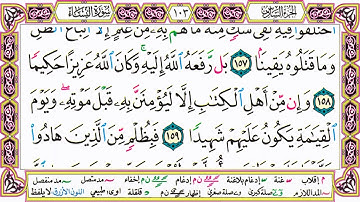 الجزء السادس ١٠٣ سورة النساء
اخْتَلَفُوا فِيهِ لَفِي شَكٍّ مِنْهُ مَا لَهُمْ بِهِ مِنْ عِلْمٍ إِلَّا اتِّبَاعَ الظَّنِّ
وَمَا قَتَلُوهُ يَقِينًا ١٥٧ بَلْ رَفَعَهُ اللَّهُ إِلَيْهِ وَكَانَ اللَّهُ عَزِيزًا حَكِيمًا
١٥٨ وَإِنْ مِنْ أَهْلِ الْكِتَابِ إِلَّا لَيُؤْمِنَنَّ بِهِ قَبْلَ مَوْتِهِ وَيَوْمَ
الْقِيَامَةِ يَكُونُ عَلَيْهِمْ شَهِيدًا ١٥٩ فَبِظُلْمٍ مِنَ الَّذِينَ هَادُوا